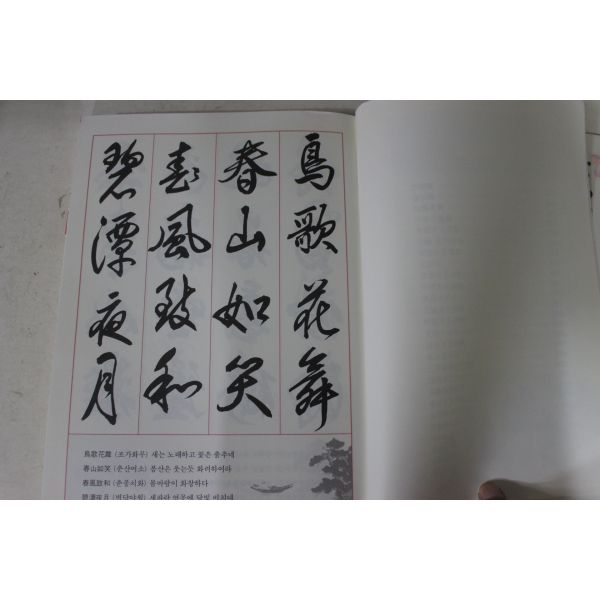 鳥歌花舞
春山如笑
春風致和
碧潭夜月
鳥歌花舞 (조가화무) 새는 노래하고 꽃은 춤추네
春山如笑 (춘산여소) 봄산은 웃는듯 화려하여라
春風致和 (춘풍치화) 봄바람이 화창하다
碧潭夜月 (벽담야월) 새파란 연못에 달빛 비치네